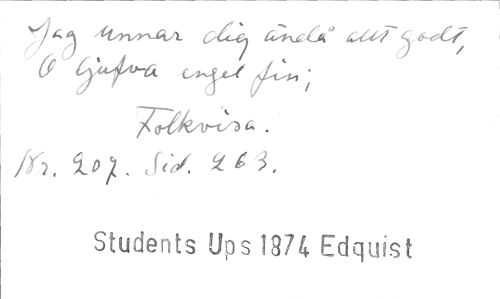 Jag unnar dig ändå allt godt,
O ljufva engel fin;
Folkvisa.
Nr. 207. Sid. 263.
Students Ups 1874 Edquist